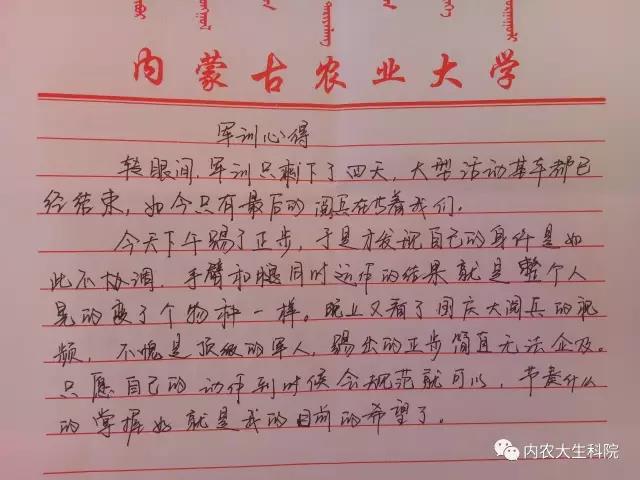 内蒙古农业大学
军训心得
转眼间,军训只剩下了四天,大型活动基本都已
经结束,如今只有最后的阅兵在等着我们。
今天下午踢了正步,于是才发现自己的身体是如
此不协调,手臂和腿同时运作的结果就是整个人
晃的变了个物种一样。晚上又看了国庆大阅兵的视
频,不愧是顶级的军人,踢出的正步简直无法企及。
只愿自己的动作到时候会规范就可以,节奏什么
的掌握好就是我的目前的希望了。
内农大生科院